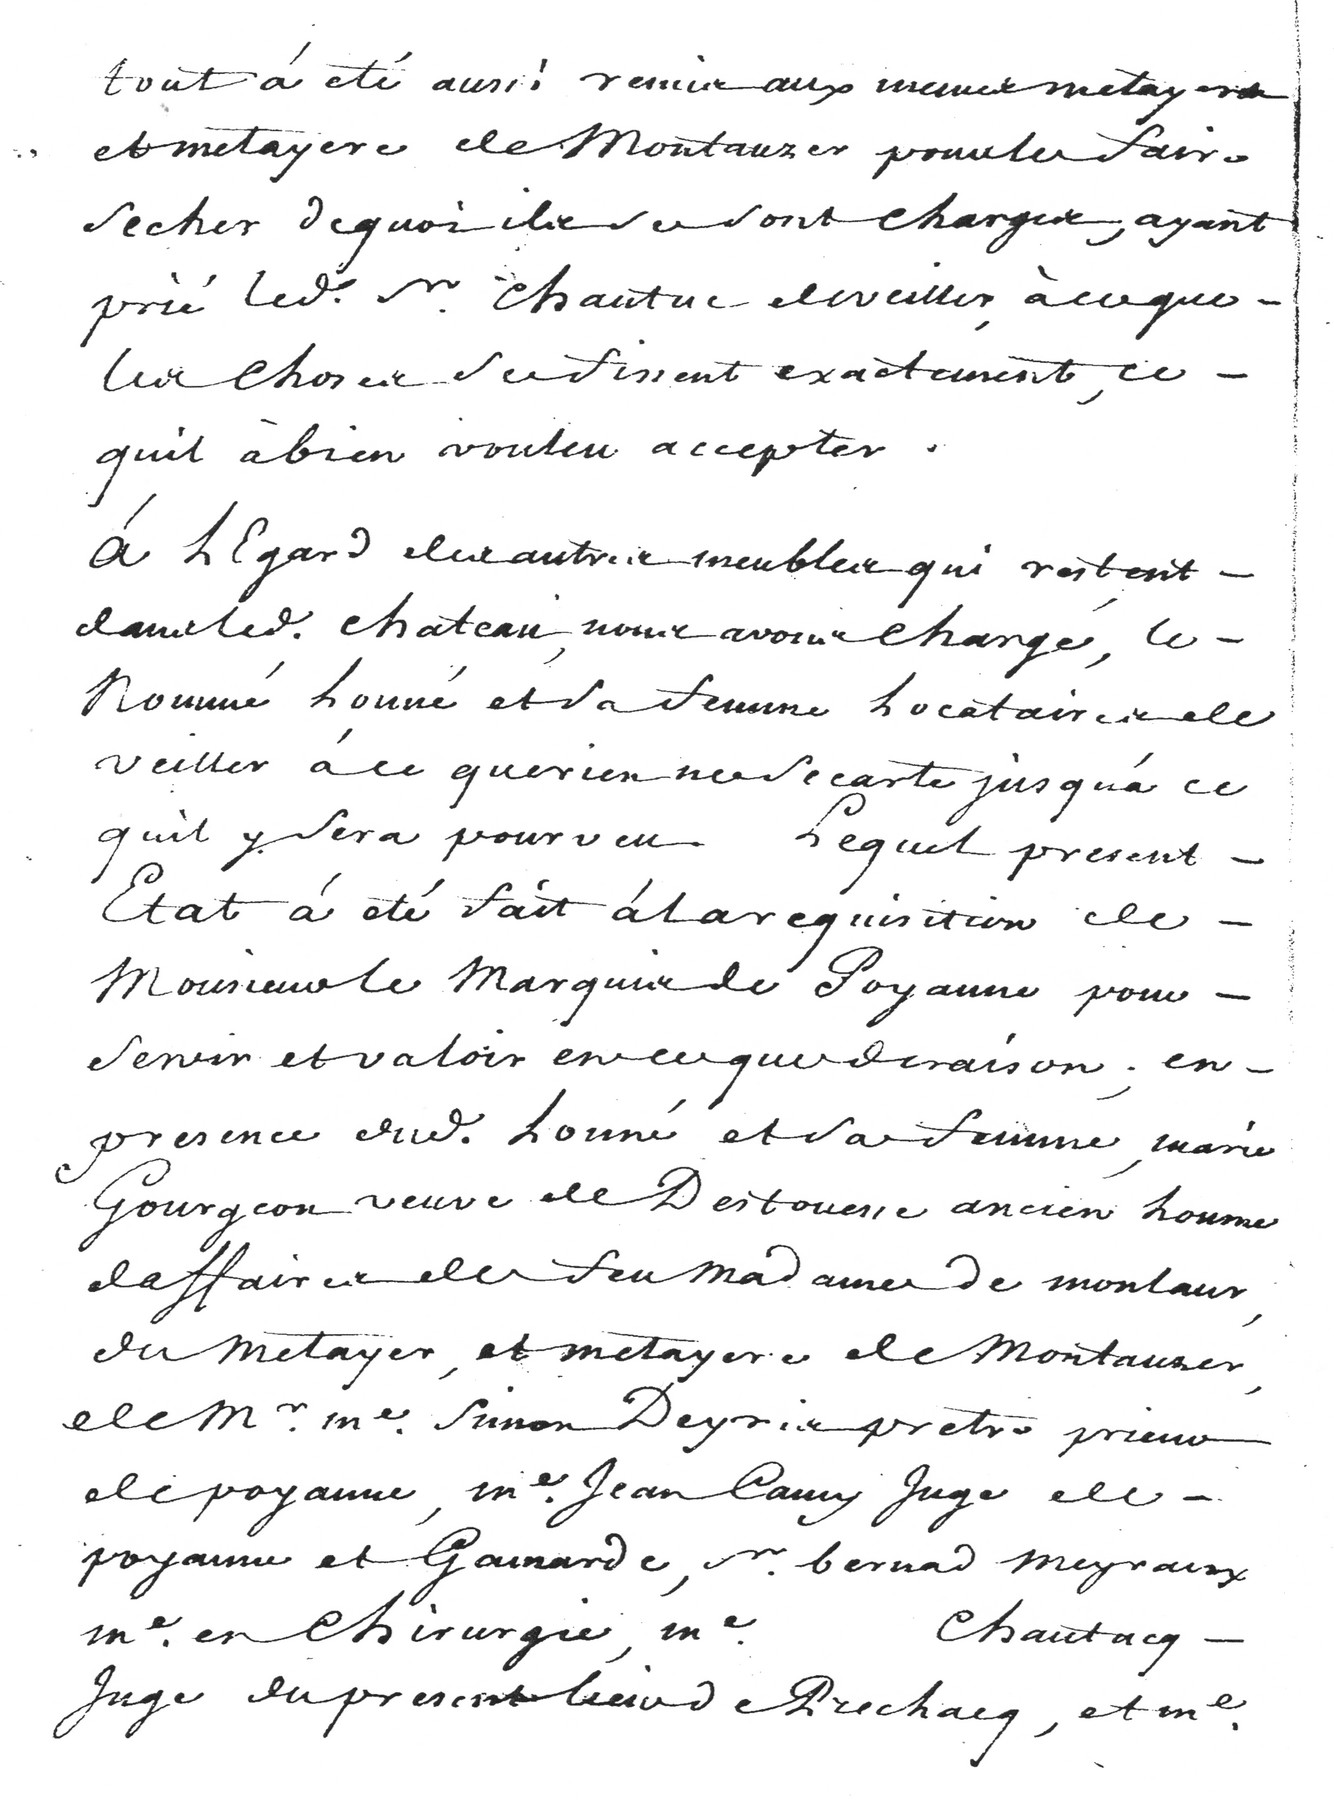 tout á eté aussi remis aux memes metayers
et metayere de Montauzer pour les faire
secher dequoi ils se sont chargés, ayant
prié led. Sr. Chautuc de veiller, à ce que -
les choses se fissent exactement, ce -
quil à bien vouleu accepter.
á LEgard des autres meubles qui restent -
dans led. chateau, nous avons chargé, le -
Nommé Lonné et sa femme Locataires de
veiller á ce que rien ne secarte jusquá ce
quil y sera pourveu. Lequel present -
Etat á eté fait á la requisition de -
Monsieur le Marquis de Poyanne pour -
servir et valoir en ce que de raison; en -
presence dud. Lonné et sa femme, marie
Gourgeon veuve de Destouesse ancien homme
daffaires de feu Madame de montaur,
du Metayer, et metayere de Montauzer,
de Mr. me. Simon Deyris pretre prieur
de poyanne, me. Jean Camy Juge de -
poyanne et Gamarde, Sr. bernad Meyraux
me. en Chirurgie, me. Chautacq -
Juge du present lieu de Prechacq, et me.